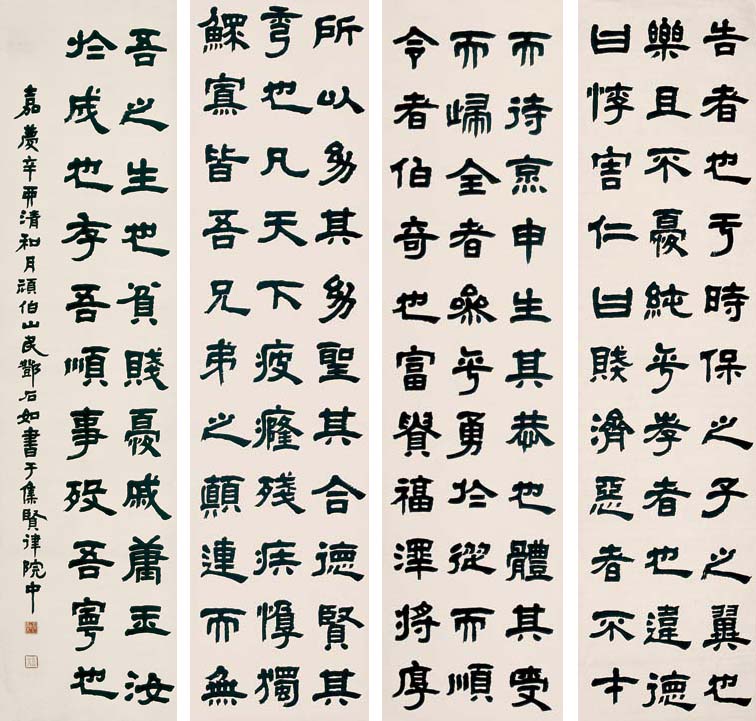 告者也于時保之子之翼也
樂且不憂純乎孝者也違德
曰悖害仁曰賊濟惡者不才
而待烹申生其恭也體其受
而歸全者參乎勇於從而順
令者伯奇也富貴福澤將厚
所以幼其幼聖其合德賢其
秀也凡天下疲癃殘疾惸獨
鰥寡皆吾兄弟之顛連而無
吾之生也貧賤憂戚庸玉汝
於成也存吾順事歿吾寧也
嘉慶辛酉清和月頑伯山民鄧石如書于集賢律院中